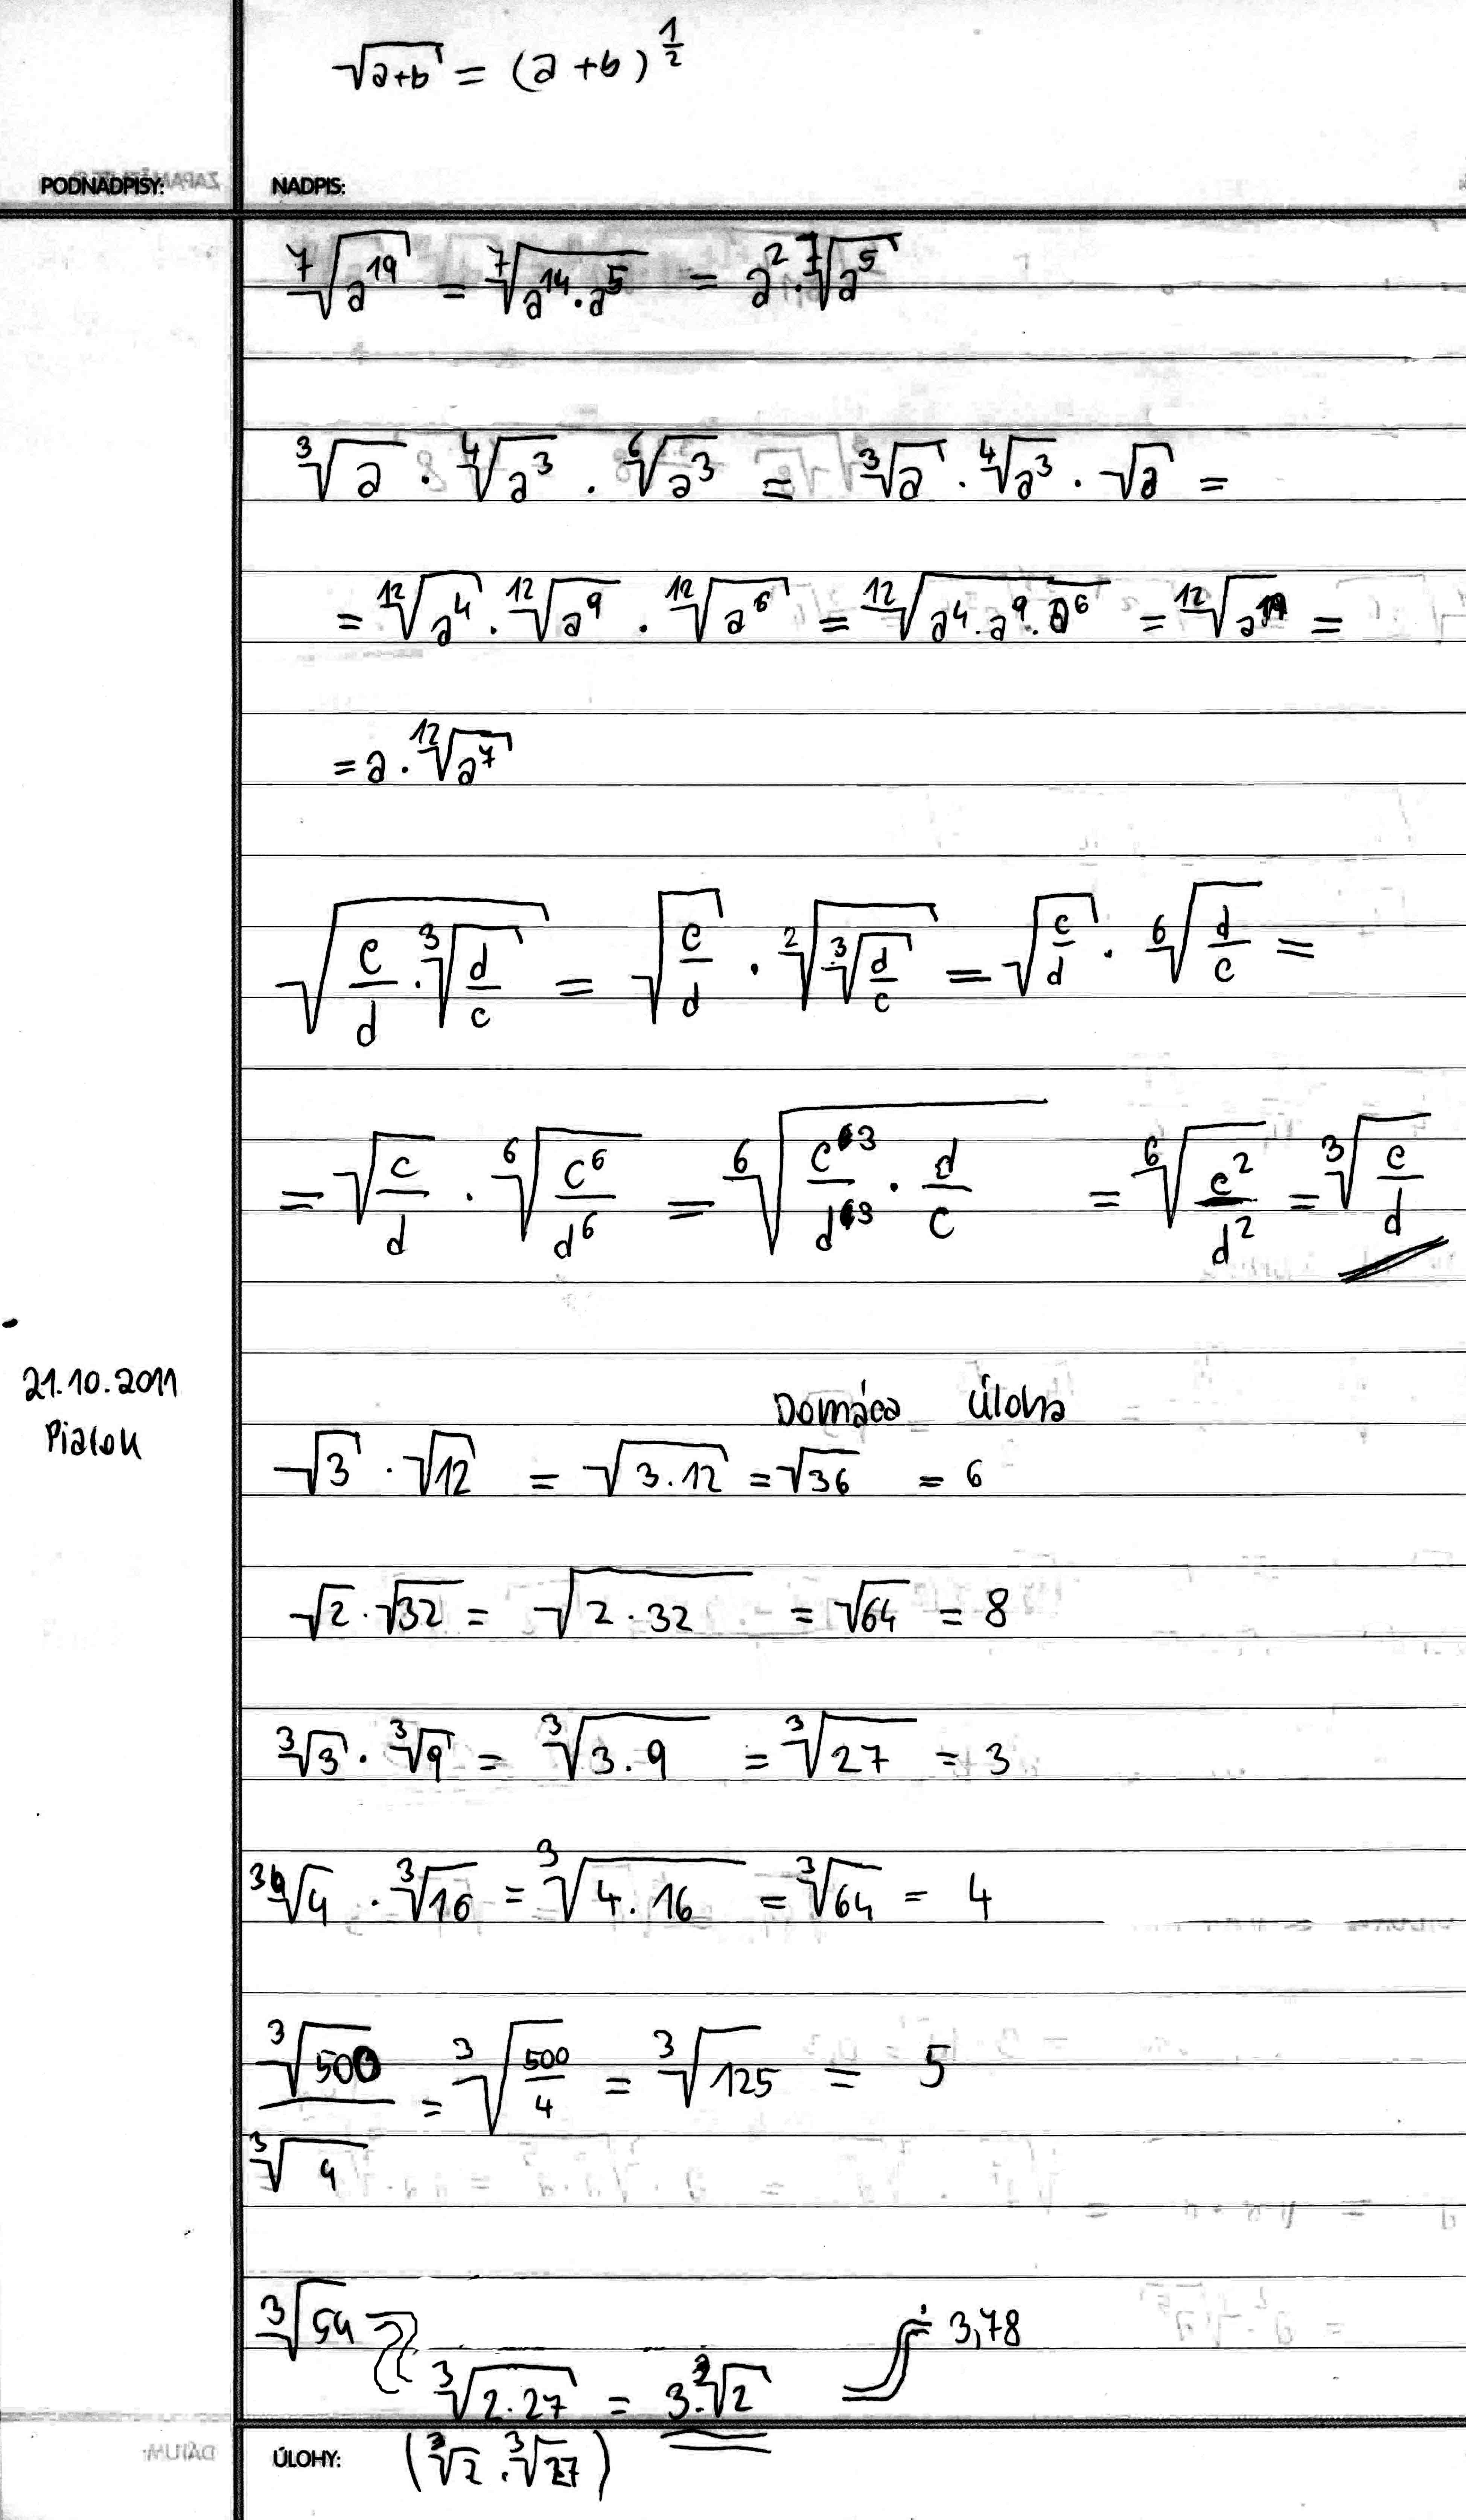 √(a+b) = (a+b)^(1/2)
PODNADPISY: NADPIS:
⁷√(a¹⁹) = ⁷√(a¹⁴·a⁵) = a²·⁷√(a⁵)
³√a · ⁴√(a³) · ⁶√(a³) = ³√a · ⁴√(a³) · √a =
= ¹²√(a⁴) · ¹²√(a⁹) · ¹²√(a⁶) = ¹²√(a⁴·a⁹·a⁶) = ¹²√(a¹⁹) =
= a·¹²√(a⁷)
√(c/d · ³√(d/c)) = √(c/d) · ²√(³√(d/c)) = √(c/d) · ⁶√(d/c) =
= √(c/d) · ⁶√(c⁶/d⁶) = ⁶√(c³/d³ · d/c) = ⁶√(c²/d²) = ³√(c/d)
21.10.2011
Piatok
Domáca Úloha
√3 · √12 = √(3.12) = √36 = 6
√2 · √32 = √(2·32) = √64 = 8
³√3 · ³√9 = ³√(3.9) = ³√27 = 3
³√4 · ³√16 = ³√(4.16) = ³√64 = 4
³√500 / ³√4 = ³√(500/4) = ³√125 = 5
³√54 ≐ 3,78
³√(2.27) = 3.³√2
ÚLOHY: (³√2 . ³√27)